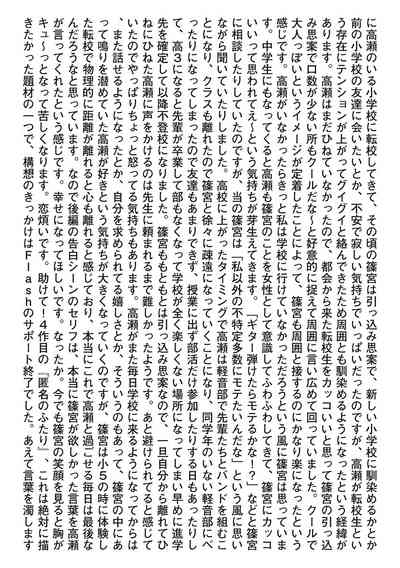 に高瀬のいる小学校に転校してきて、その頃の篠宮は引っ込み思案で、新しい小学校に馴染めるかとか
前の小学校の友達に会いたいとか、不安で寂しい気持ちでいっぱいだったのですが、高瀬が転校生とい
う存在にテンションが上がってグイグイと絡んできたため周囲とも馴染めるようになったという経緯が
あります。高瀬はまだひねていなかったので、都会から来た転校生をカッコいいと思って篠宮の引っ込
み思案で口数が少ない所もクールだな〜と好意的に捉えて周囲に言い広めて回っていました。クールで
大人っぽいというイメージが定着したことによって、篠宮も周囲と接するのにかなり楽になったという
感じです。高瀬がいなかったらきっと私は学校に行けていなかっただろうという風に篠宮は思っていま
す。中学生にもなってくると高瀬も篠宮のことを女性として意識してふわふわしてきて、篠宮にカッコ
いいって思われてえ〜という気持ちが芽生えてきます。「ギター弾けたらモテるかな！？」などと篠宮
に相談したりしていたのですが、当の篠宮は「私以外の不特定多数にモテたいんだな」という風に思い
ながら聞いていたりしました。高校に上がったタイミングで高瀬は軽音部で先輩たちとバンドを組むこ
とになり、クラスも離れたので篠宮と徐々に疎遠になっていくことになり、同学年のいない軽音部にべ
ったりになってしまったので友達もあまりできず、授業に出ず部活だけ参加したりする日もあったりし
て、高３になると先輩が卒業して部もなくなって学校が全く楽しくない場所になってしまい早めに進学
先を確定して以降不登校になりました。篠宮ももともとは引っ込み思案なので、一旦自分から離れてひ
ねにひねた高瀬に声をかけるのは先生に頼まれるまで難しかったようです。あと避けられてると感じて
いたのでやっぱりちょっと怒ってる気持ちもあります。高瀬がまた毎日学校に来るようになってからは
、また話せるようになったとか、自分を求められてる嬉しさとか、そういうのもあって、篠宮の中にあ
って鳴りを潜めていた高瀬が好きという気持ちが大きくなっていくのですが、篠宮は小５の時に体験し
た転校で物理的に距離が離れると心も離れると感じており、本当にこれで高瀬と過ごせる毎日は最後な
んだろうなと思っています。なので後編の告白シーンのセリフは、本当に篠宮が欲しかった言葉を高瀬
が言ってくれたという感じです。幸せになってほしいです。なったか。今でも篠宮の笑顔を見ると胸が
キュ〜っとなって苦しくなります。恋煩いです。助けて！４作目の『匿名のふたり』、これは絶対に描
きたかった題材の一つで、構想のきっかけはＦｌａｓｈのサポート終了でした。あえて言葉を濁します